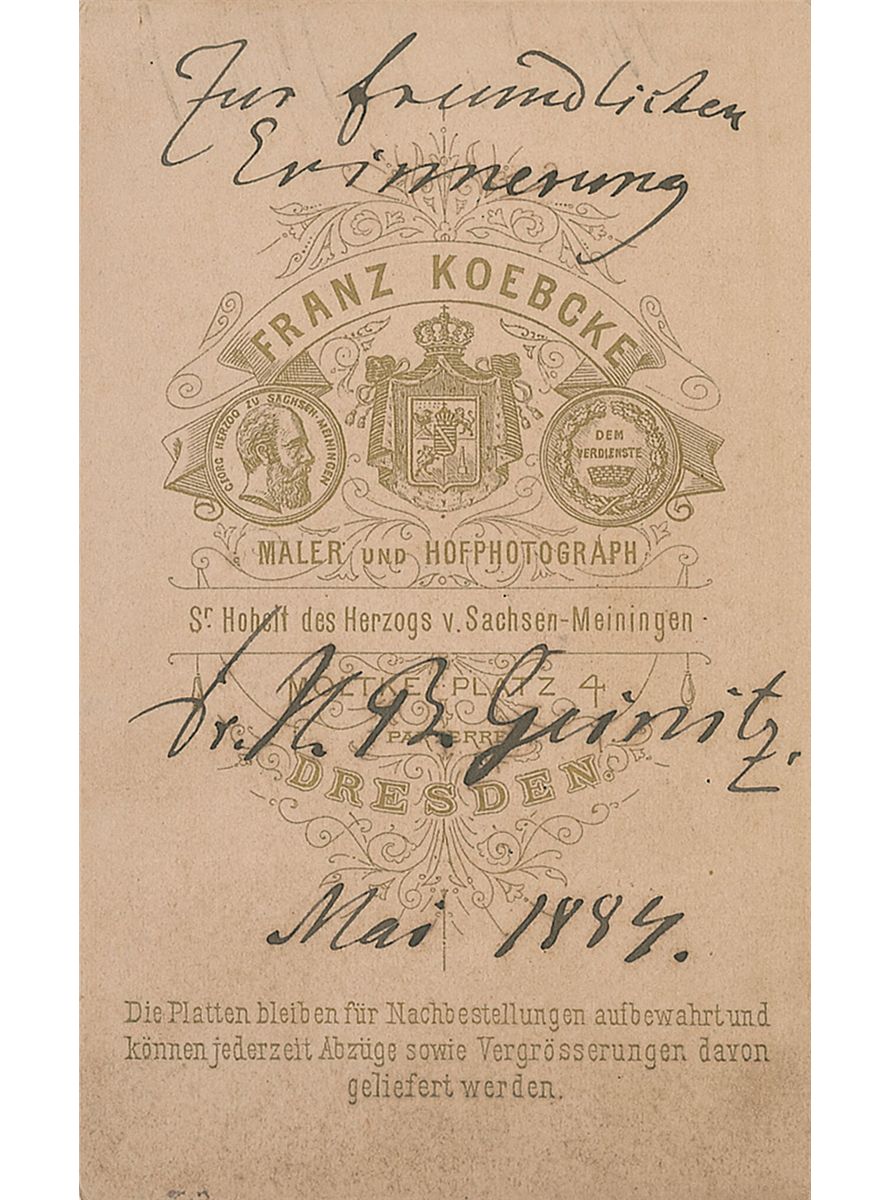 Zur freundlichen
Erinnerung
FRANZ KOEBCKE
GEORG HERZOG ZU SACHSEN-MEININGEN
DEM
VERDIENSTE
MALER UND HOFPHOTOGRAPH
Sr. Hoheit des Herzogs v. Sachsen-Meiningen
MOLTKE-PLATZ 4
PARTERRE
Dr. H. B. Geinitz.
DRESDEN.
Mai 1884.
Die Platten bleiben für Nachbestellungen aufbewahrt und
können jederzeit Abzüge sowie Vergrösserungen davon
geliefert werden.